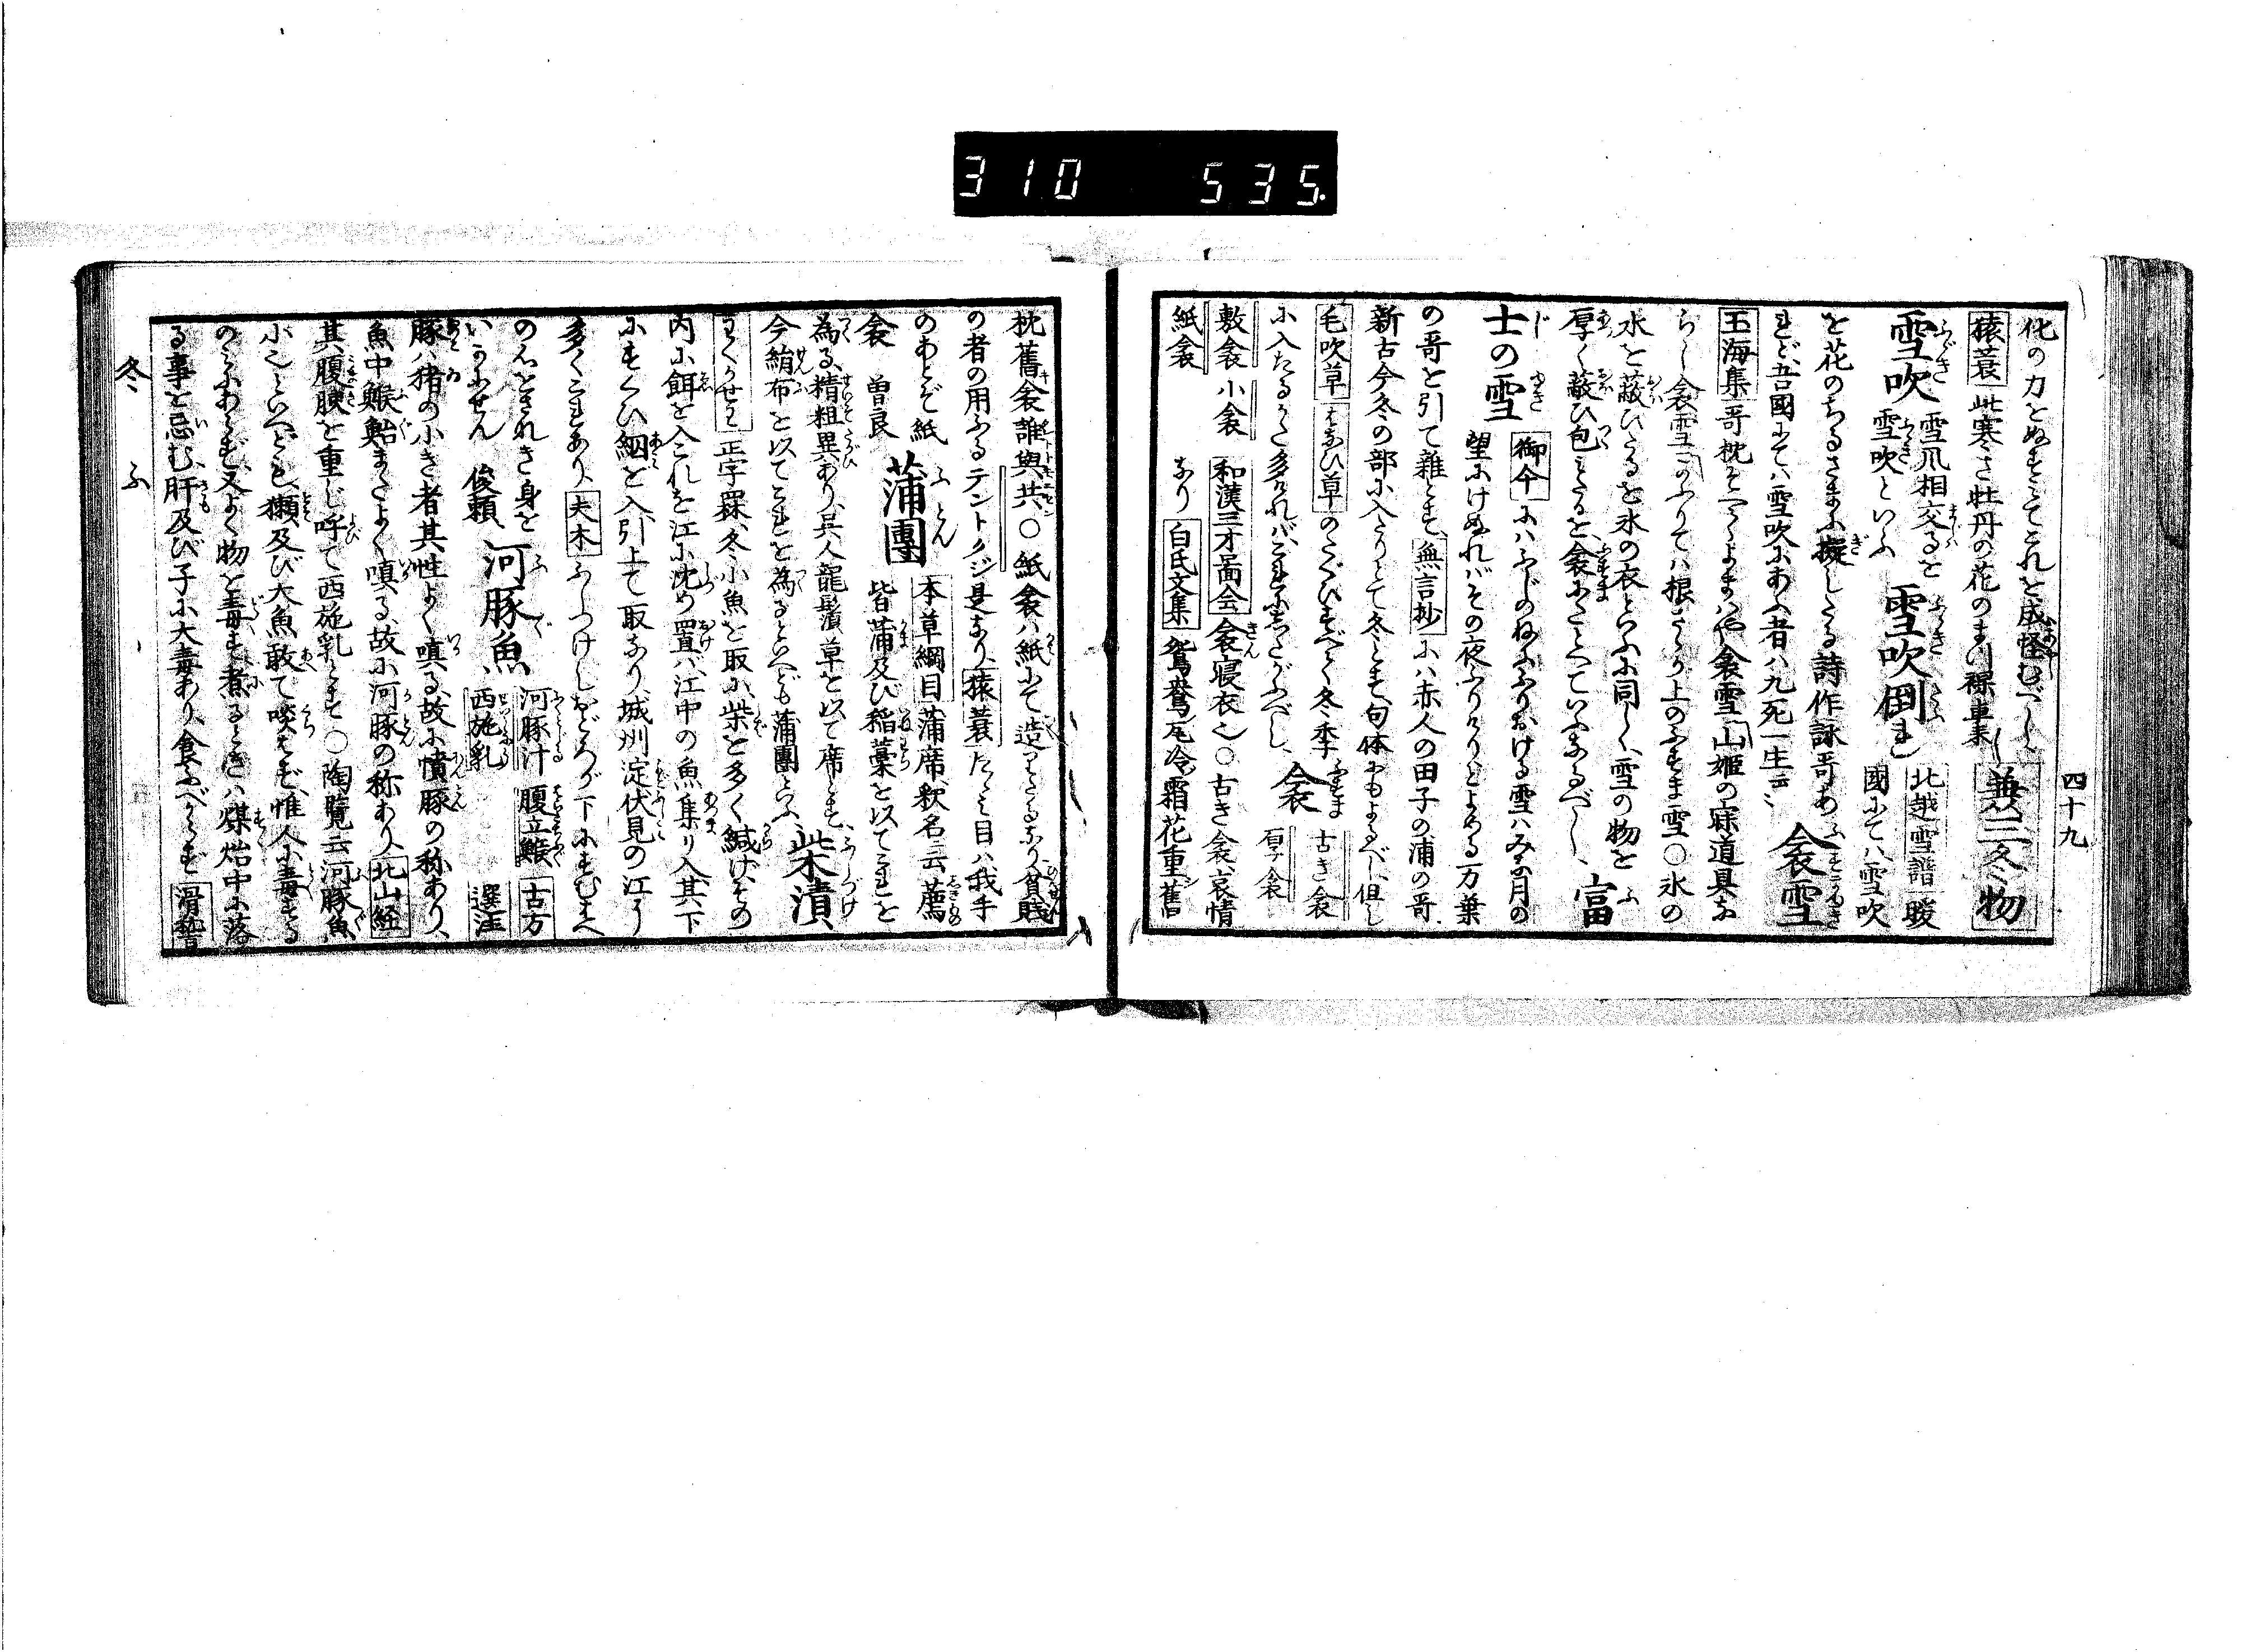 310 535
四十九
化の力をぬすみてこれを成怪むべし
猿蓑 此寒さ牡丹の花のまつ裸 車来 兼三冬物
雪吹 雪風相交るを雪吹といふ 雪吹倒れ 北越雪譜 暖國にては雪吹
を花のちるさまに擬したる詩作詠哥あ
れど、吾國にては雪吹にあふ者は九死一生云々 衾雪
玉海集 哥枕そへてよまはや衾雪 山姫の寐道具か
らし衾雪 のふりては根さゝの上のふすま雪 ○氷の
水を蔽ひたるを氷の衣といふに同しく、雪の物を
厚く蔽ひ包みたるを、衾にたとへていふなるべし、 富
士の雪 御傘 にはふじのねにふりおける雪はみな月の望にけぬればその夜ふりけりとよめる万葉
の哥を引て雜とす、 無言抄 には赤人の田子の浦の哥
新古今冬の部に入たりとて冬とす、句体にもよるべし、但し
毛吹草 はなひ草 のたぐひすべて冬季
に入たるかた多ければ、これにしたがふべし、 衾 古き衾 厚衾
敷衾 小衾 和漢三才圖会 衾寝衣也 ○古き衾、哀情
紙衾 なり 白氏文集 鴛鴦瓦冷霜花重、舊
枕舊衾誰與共 ○紙衾は紙にて造りたるなり、貧賤
の者の用ふるテントクジ是なり、 猿蓑 たゝみ目は我手
のあとぞ紙衾 曽良 蒲團 本草綱目 蒲席、釈名云薦皆蒲及び稲藁を以てこれを
為る、精粗異あり、呉人龍鬚草を以て席とす、
今絹布を以てこれを為るといへども蒲團といふ、 柴漬
わくかせわ 正字罧、冬小魚を取に、柴を多く緘げ、その
内に餌を入これを江に沈め置ば、江中の魚集り入、其下
にすくひ網を入、引上て取なり、城州淀伏見の江に
多くこれあり、 夫木 ふしつけしおどろが下にすむはへ
の心をさなき身をいかにせん 俊頼 河豚魚 河豚汁 腹立鰒 古方 西施乳 選注
豚は猪の小き者其性よく嗔る、故に憤豚の称あり、
魚中鯸鮐またよく嗔る、故に河豚の称あり、 北山経
其腹腴を重じ呼て西施乳とす ○陶覧云河豚魚
小也といへども、獺及び大魚敢て啖はず、惟人に毒する
のみにあらず、又よく物を毒す、煮るときは煤炲中に落
る事を忌む、肝及び子に大毒あり、食ふべからず 滑稽
冬 ふ